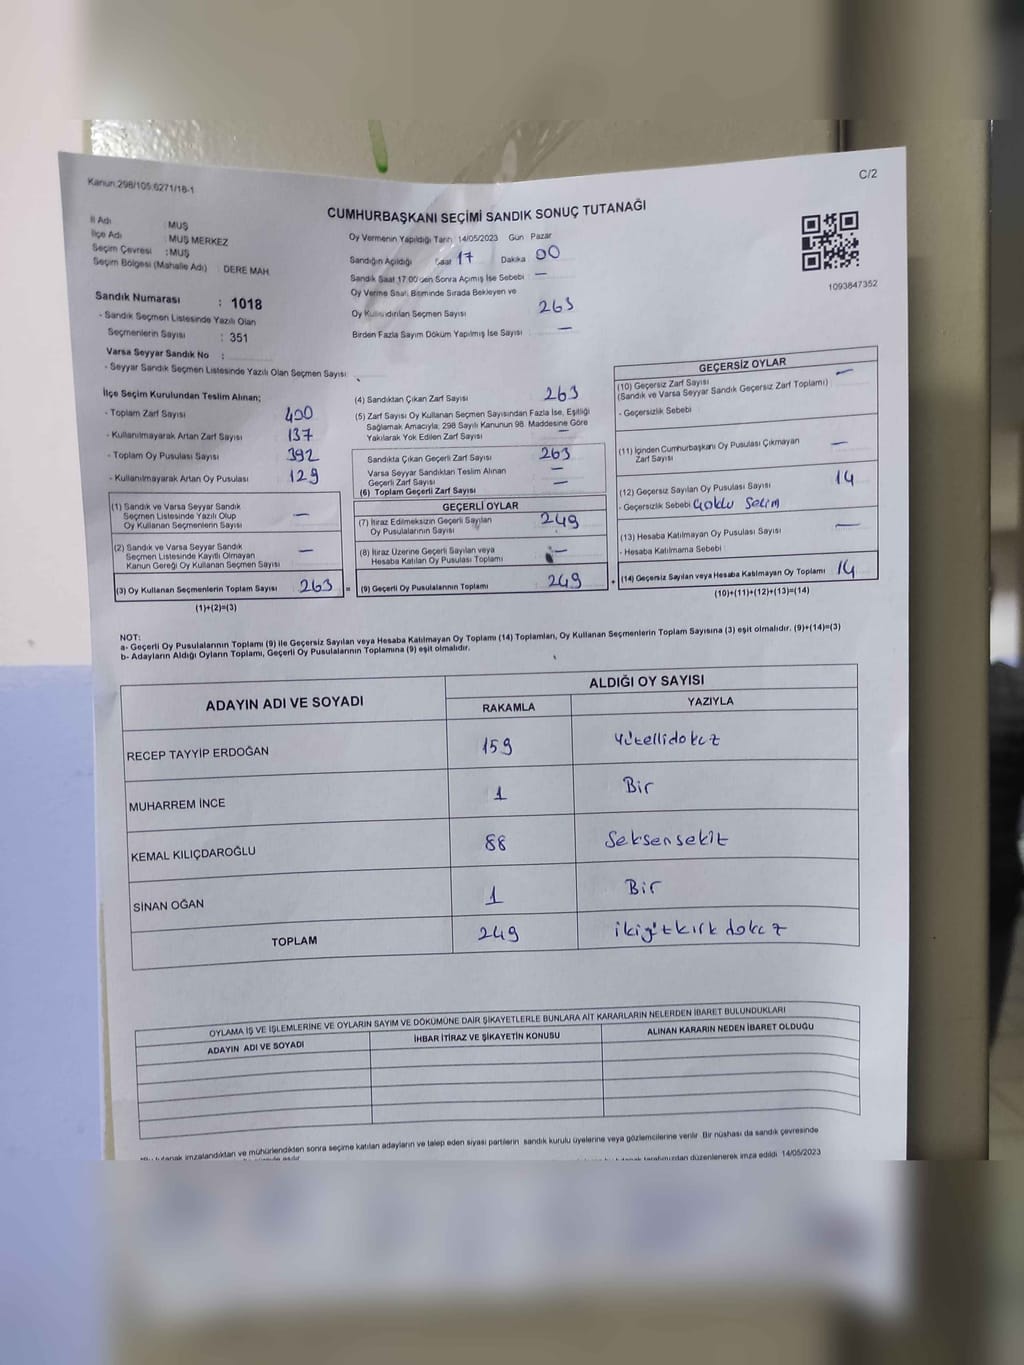 Kanun:298/105;6271/18-1
C/2
CUMHURBAŞKANI SEÇİMİ SANDIK SONUÇ TUTANAĞI
İl Adı : MUŞ
İlçe Adı : MUŞ MERKEZ
Seçim Çevresi : MUŞ
Seçim Bölgesi (Mahalle Adı) : DERE MAH.
Sandık Numarası : 1018
- Sandık Seçmen Listesinde Yazılı Olan
Seçmenlerin Sayısı : 351
Varsa Seyyar Sandık No :
- Seyyar Sandık Seçmen Listesinde Yazılı Olan Seçmen Sayısı:
Oy Vermenin Yapıldığı Tarih 14/05/2023 Gün Pazar
Sandığın Açıldığı Saat 17 Dakika 00
Sandık Saat 17:00'den Sonra Açımış İse Sebebi : —
Oy Verme Saati Bitiminde Sırada Bekleyen ve
Oy Kullandırılan Seçmen Sayısı 263
Birden Fazla Sayım Döküm Yapılmış İse Sayısı : —
1093847352
İlçe Seçim Kurulundan Teslim Alınan;
- Toplam Zarf Sayısı 400
- Kullanılmayarak Artan Zarf Sayısı 137
- Toplam Oy Pusulası Sayısı 392
- Kullanılmayarak Artan Oy Pusulası 129
(1) Sandık ve Varsa Seyyar Sandık
Seçmen Listesinde Yazılı Olup
Oy Kullanan Seçmenlerin Sayısı —
(2) Sandık ve Varsa Seyyar Sandık
Seçmen Listesinde Kayıtlı Olmayan
Kanun Gereği Oy Kullanan Seçmen Sayısı —
(3) Oy Kullanan Seçmenlerin Toplam Sayısı 263 =
(1)+(2)=(3)
(4) Sandıktan Çıkan Zarf Sayısı 263
(5) Zarf Sayısı Oy Kullanan Seçmen Sayısından Fazla İse, Eşitliği
Sağlamak Amacıyla, 298 Sayılı Kanunun 98. Maddesine Göre
Yakılarak Yok Edilen Zarf Sayısı —
Sandıkta Çıkan Geçerli Zarf Sayısı 263
Varsa Seyyar Sandıktan Teslim Alınan
Geçerli Zarf Sayısı —
(6) Toplam Geçerli Zarf Sayısı —
GEÇERLİ OYLAR
(7) İtiraz Edilmeksizin Geçerli Sayılan
Oy Pusulalarının Sayısı 249
(8) İtiraz Üzerine Geçerli Sayılan veya
Hesaba Katılan Oy Pusulası Toplamı —
(9) Geçerli Oy Pusulalarının Toplamı 249 +
GEÇERSİZ OYLAR
(10) Geçersiz Zarf Sayısı —
(Sandık ve Varsa Seyyar Sandık Geçersiz Zarf Toplamı)
- Geçersizlik Sebebi
(11) İçinden Cumhurbaşkanı Oy Pusulası Çıkmayan
Zarf Sayısı —
(12) Geçersiz Sayılan Oy Pusulası Sayısı 14
- Geçersizlik Sebebi Çoklu Seçim
(13) Hesaba Katılmayan Oy Pusulası Sayısı —
- Hesaba Katılmama Sebebi
(14) Geçersiz Sayılan veya Hesaba Katılmayan Oy Toplamı 14
(10)+(11)+(12)+(13)=(14)
NOT:
a- Geçerli Oy Pusulalarının Toplamı (9) ile Geçersiz Sayılan veya Hesaba Katılmayan Oy Toplamı (14) Toplamları, Oy Kullanan Seçmenlerin Toplam Sayısına (3) eşit olmalıdır. (9)+(14)=(3)
b- Adayların Aldığı Oyların Toplamı, Geçerli Oy Pusulalarının Toplamına (9) eşit olmalıdır.
ADAYIN ADI VE SOYADI ALDIĞI OY SAYISI
RAKAMLA YAZIYLA
RECEP TAYYİP ERDOĞAN 159 Yüzellidokuz
MUHARREM İNCE 1 Bir
KEMAL KILIÇDAROĞLU 88 Seksensekiz
SİNAN OĞAN 1 Bir
TOPLAM 249 ikiyüzkırkdokuz
OYLAMA İŞ VE İŞLEMLERİNE VE OYLARIN SAYIM VE DÖKÜMÜNE DAİR ŞİKAYETLERLE BUNLARA AİT KARARLARIN NELERDEN İBARET BULUNDUKLARI
ADAYIN ADI VE SOYADI İHBAR İTİRAZ VE ŞİKAYETİN KONUSU ALINAN KARARIN NEDEN İBARET OLDUĞU
tutanak imzalandıktan ve mühürlendikten sonra seçime katılan adayların ve talep eden siyasi partilerin sandık kurulu üyelerine veya gözlemcilerine verilir. Bir nüshası da sandık çevresinde
tarafımızdan düzenlenerek imza edildi. 14/05/2023